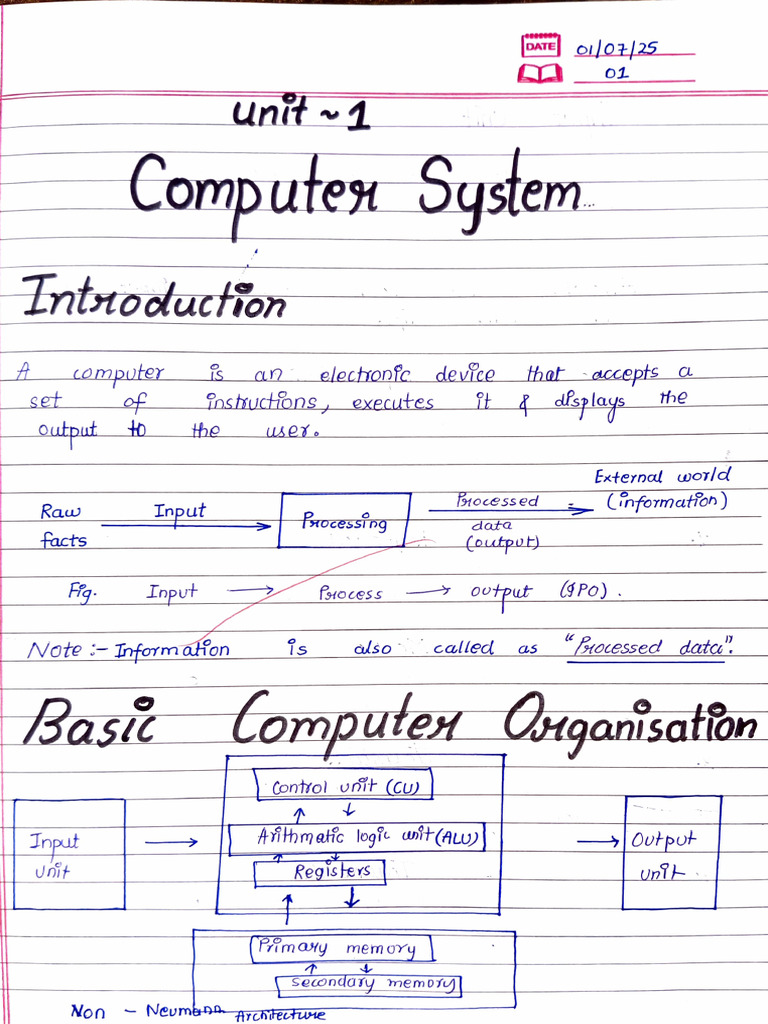 DATE 01/07/25
01
Unit ~ 1
Computer System...
Introduction
A computer is an electronic device that accepts a
set of instructions, executes it & displays the
output to the user.
External world
(information)
Raw
facts
Input
Processing
Processed
data
(output)
Fig. Input → Process → output (IPO).
Note :- Information is also called as "Processed data".
Basic Computer Organisation
Control unit (CU)
Input
unit
Arithmatic logic unit (ALU)
Output
unit
Registers
Primary memory
Secondary memory
Non - Neumann Architecture